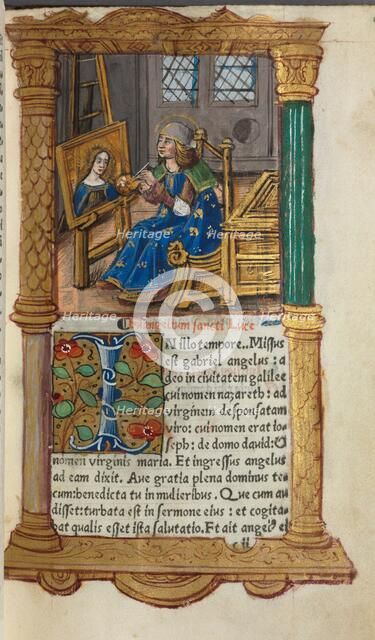 Evangelium sancti Luce
IN illo tempore. Missus
est gabriel angelus: a
deo in ciuitatem galilee
cui nomen nazareth: ad
virginem desponsatam
viro: cui nomen erat io-
seph: de domo dauid: &
nomen virginis maria. Et ingressus angelus
ad eam dixit. Aue gratia plena dominus te
cum: benedicta tu in mulieribus. Que cum au
disset: turbata est in sermone eius: et cogita-
bat qualis esset ista salutatio. Et ait angel' ei
c ii
Heritage
Heritage
Heritage
Heritage
Heritage
Heritage